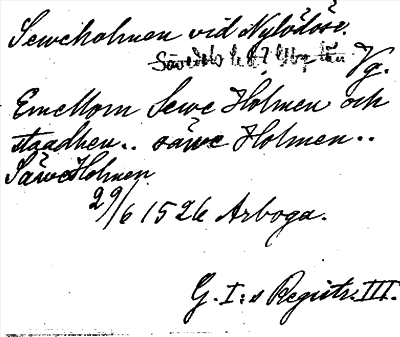 Seweholmen vid Nylödöse.
Sävedals hd Gbg län Vg.
Emellom Sewe Holmen och
staadhen.. säwe Holmen..
SäweHolmen
29/6 1526 Arboga.
G. I:s Registr. III.